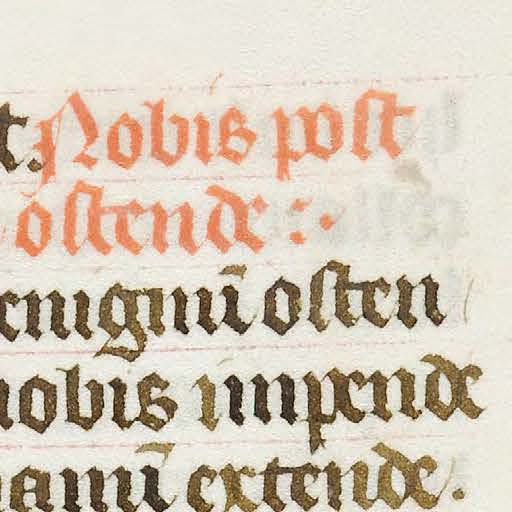 t. Nobis post
ostende :.
enigmū osten
nobis impende
amū extende.